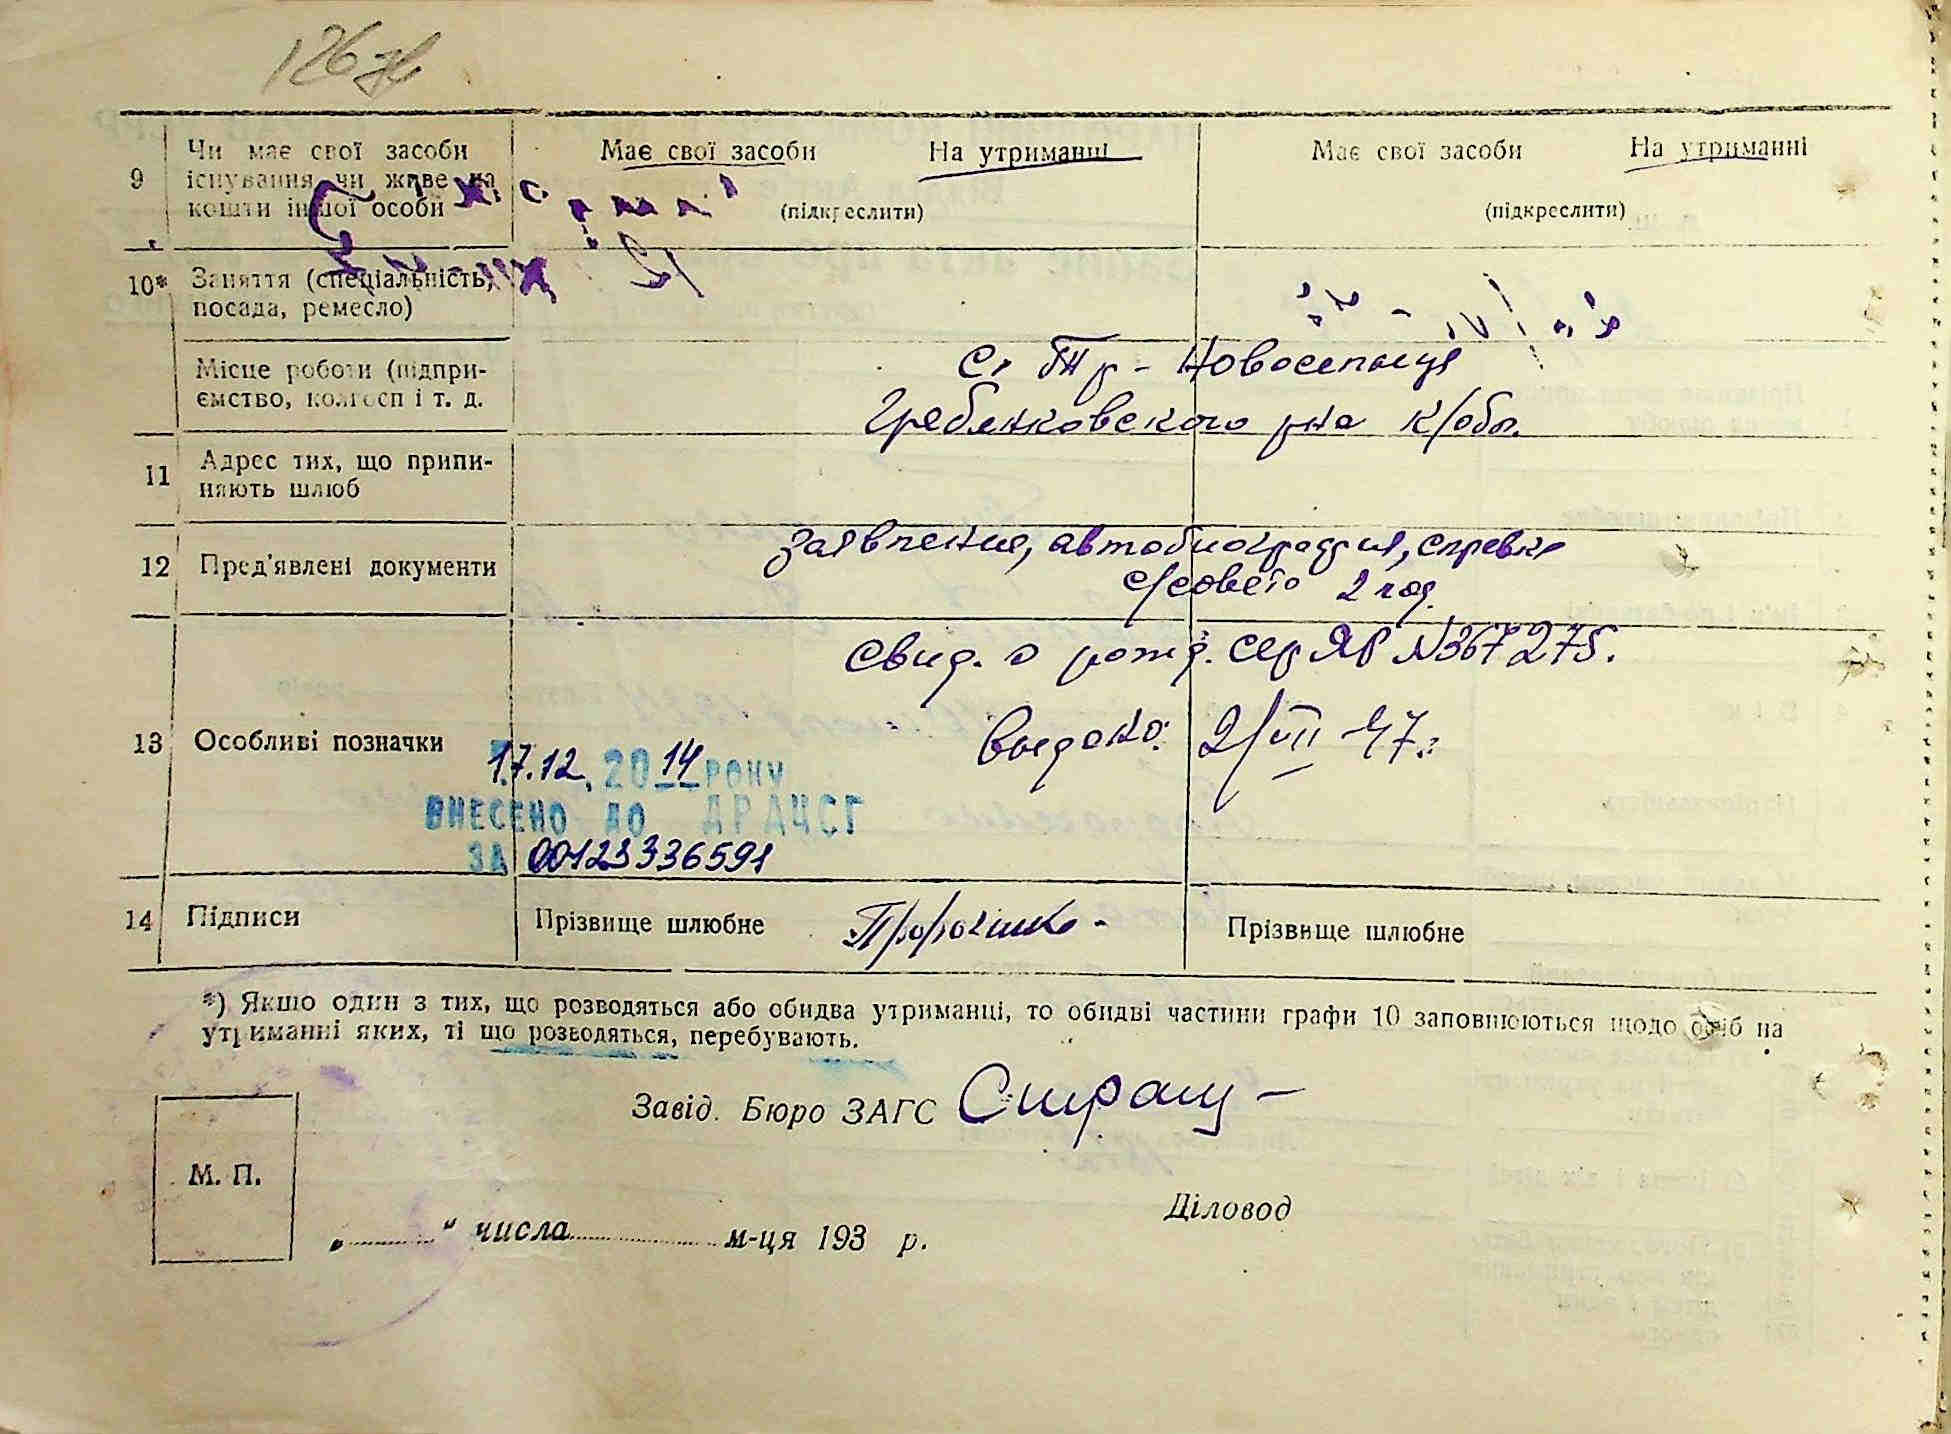 126 зв
9 Чи має свої засоби існування чи живе на кошти іншої особи
Має свої засоби На утриманні
(підкреслити)
Має свої засоби На утриманні
(підкреслити)
10* Заняття (спеціальність, посада, ремесло)
Місце роботи (підпри-
ємство, колгосп і т. д.
Ст Тр - Новоселица
Гребенковского р-на К/обл.
11 Адрес тих, що припи-
няють шлюб
12 Пред'явлені документи
заявление, автобиография, справка
с/совета
13 Особливі позначки
Свид. о рожд. сер ЯР №367275.
Выдано: 2/VII-47г
17.12.2014 РОКУ
ВНЕСЕНО ДО ДРАЦСГ
ЗА 00123336591
14 Підписи
Прізвище шлюбне
Прізвище шлюбне
*) Якщо один з тих, що розводяться або обидва утриманці, то обидві частини графи 10 заповнюються щодо осіб на
утриманні яких, ті що розводяться, перебувають.
Завід. Бюро ЗАГС
М. П.
Діловод
„ “ числа м-ця 193 р.